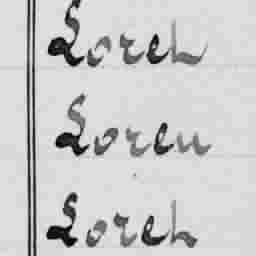 Loren
Loren
Loren